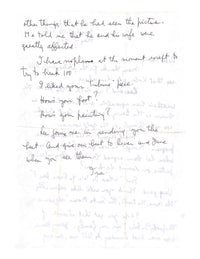 other things, that he had seen the picture.
He told me that he and his wife were
greatly affected.
I have no plans at the moment except to
try to break 100
I liked your Tribune piece.
How's your foot?
How's your painting?
joins me in sending you the
best. And give our best to and June
when you see them.
Ira